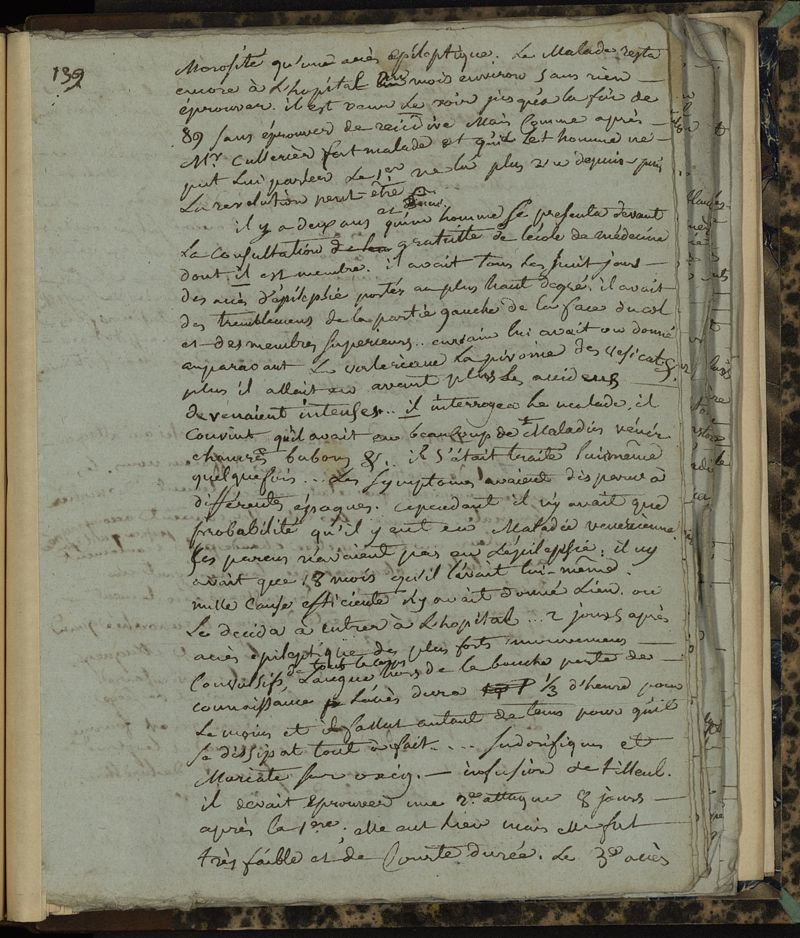 139
qu'un accès épileptique. Le Malade resta
encore à L'hopital mois environ sans rien
éprouver. il est venu Le voir jusqu'à la fin de
89 sans éprouver de recidive Mais Comme après
Mr. Cullerier fort malade et qu'il homme ne
put Lui parler ne l'a plus vu depuis
La revolution peut être
il y a deux ans qu'un homme Se presenta devant
La Consultation gratuitte de l'école de médecine
dont il est membre. il avait tous Les huit jours
des accès d'épilepsie portés au plus haut degré. il avait
des tremblemens de la partie gauche de la face du col
et des membres Superieurs.. lui avait donné
auparavant La valeriane La pivoine des vesicat
plus il allait en avant plus Les accidens
devenaient intenses.. il interrogea Le malade. il
Convint qu'il avait eu beaucoup de Maladies vener
chancres bubons &.. il S'était traité Luimême
quelquefois... Les Symptomes avaient disparu à
différentes époques. cependant il n'y avait que
probabilité qu'il y eut eu Maladie venerienne.
Ses parens n'avaient pas eu L'épilepsie; il n'y
avait que 18 mois qu'il l'avait lui-même
nulle Cause efficiente n'y avait donné Lieu. on
Le decida à entrer à L'hopital... 2 jours après
accès épileptique des plus forts mouvemens
Convulsifs de tout le corps Langue hors de la bouche perte de
connaissance L'accès dura 1/3 d'heure pour
Le moins et il fallut autant de tems pour qu'il
Se dissipat tout à fait.... Sudorifiques et
Muriate sur oxig. — infusion de tilleul.
il devait éprouver une 2de attaque 8 jours
après la 1ere. elle eut Lieu mais elle fut
très faible et de Courte durée. Le 3e accès